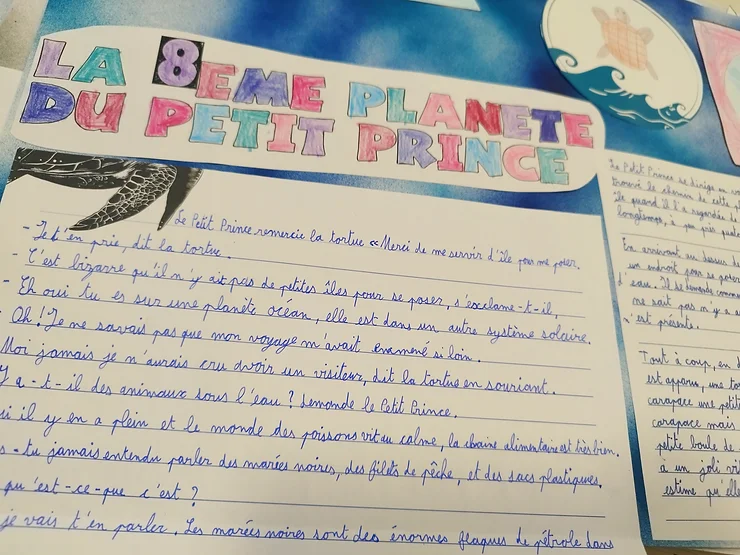 LA 8EME PLANETE
DU PETIT PRINCE
Le Petit Prince remercie la tortue « Merci de me servir d'île pour me poser.
- Je t'en prie, dit la tortue.
- C'est bizarre qu'il n'y ait pas de petites îles pour se poser, s'exclame-t-il,
- Eh oui tu es sur une planète océan, elle est dans un autre système solaire.
- Oh! Je ne savais pas que mon voyage m'avait emmené si loin.
Moi jamais je n'aurais cru avoir un visiteur, dit la tortue en souriant.
Y a-t-il des animaux sous l'eau? Demande le Petit Prince.
il y en a plein et le monde des poissons vit au calme, la chaine alimentaire est très bien.
-tu jamais entendu parler des marées noires, des filets de pêche, et des sacs plastiques.
qu'est-ce-que c'est ?
je vais t'en parler. Les marées noires sont des énormes flaques de pétrole dans
Le Petit Prince se dirige en
trouvé le chemin de cette
île quand il l'a regardée de
longtemps, à peu près
En arrivant au dessus
un endroit pour se poser
d'eau. Il se demande
ne sait pas n'y a
s'est présente.
Tout à coup, en
est apparu, une
carapace une petite
carapace mais
petite boule de
a un joli
estime qu'elle